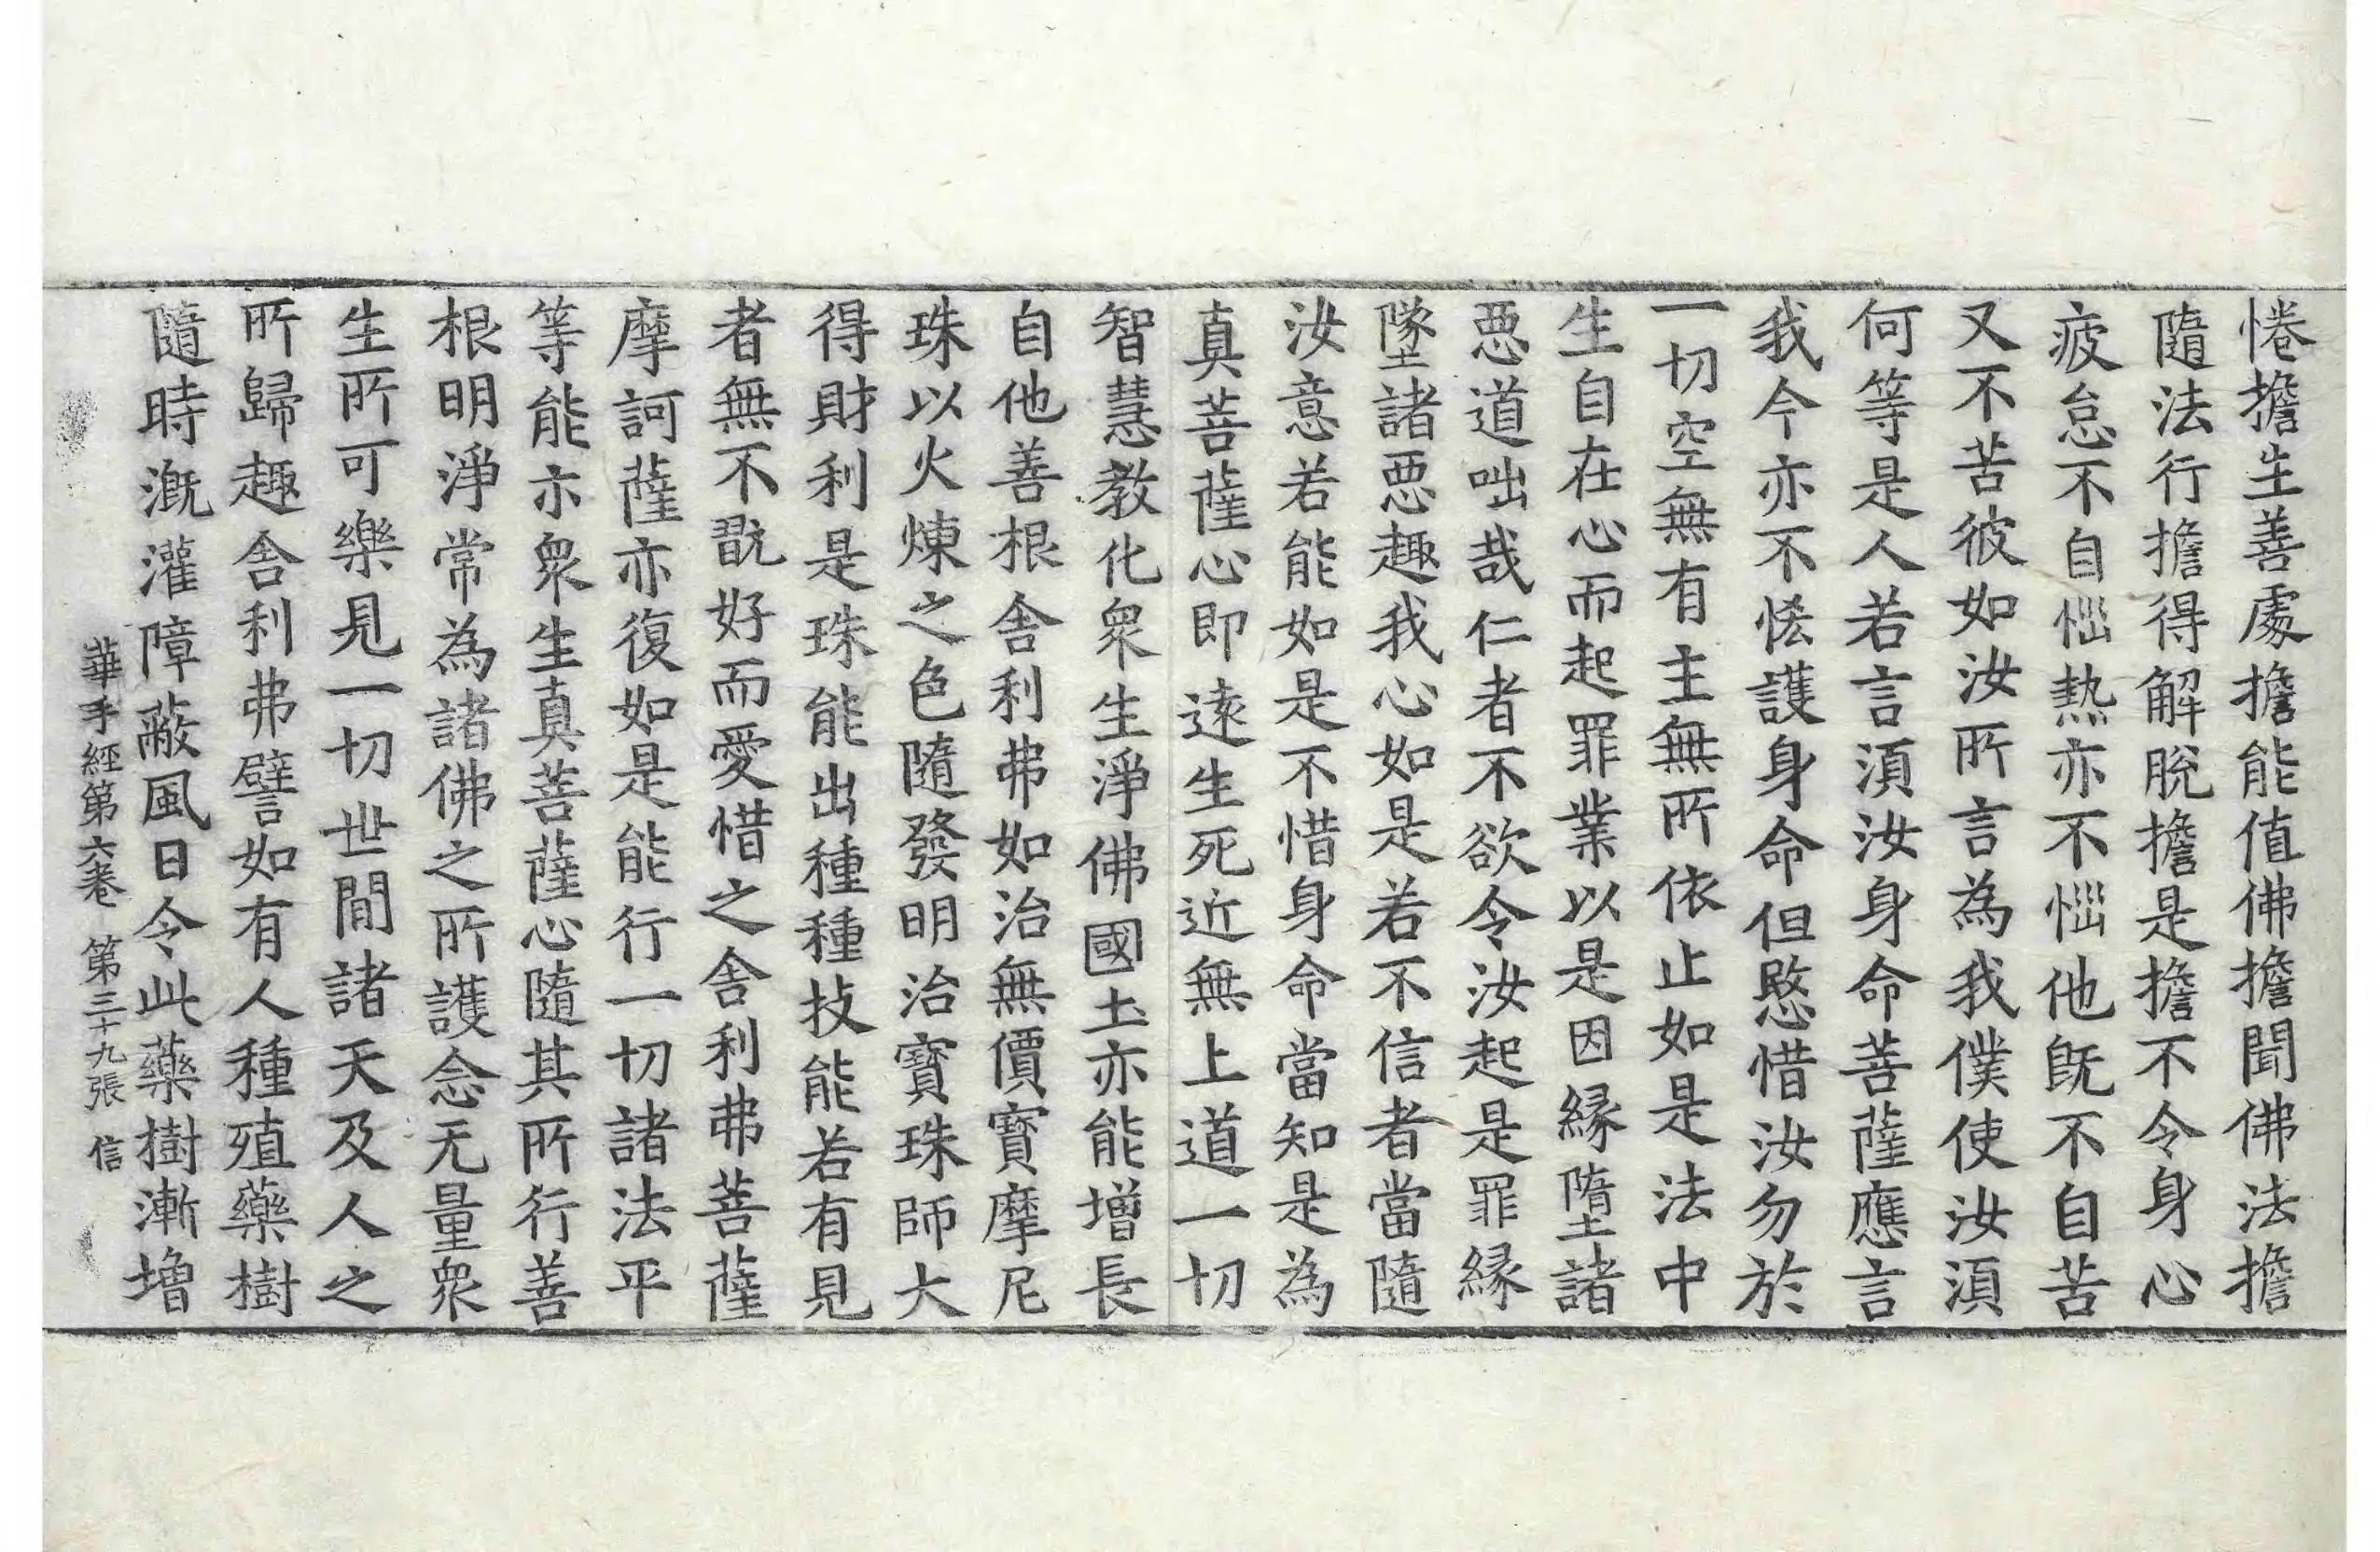 惓擔生善處擔能值佛擔聞佛法擔
隨法行擔得解脫擔是擔不令身心
疲怠不自惱熱亦不惱他旣不自苦
又不苦彼如汝所言為我僕使汝湏
何等是人若言湏汝身命菩薩應言
我今亦不恡護身命但愍惜汝勿於
一切空無有主無所依止如是法中
生自在心而起罪業以是因縁墮諸
惡道咄哉仁者不欲令汝起是罪縁
墜諸惡趣我心如是若不信者當隨
汝意若能如是不惜身命當知是為
真菩薩心即遠生死近無上道一切
智慧教化衆生淨佛國土亦能增長
自他善根舍利弗如治無價寶摩尼
珠以火煉之色隨發明治寶珠師大
得財利是珠能出種種技能若有見
者無不翫好而愛惜之舍利弗菩薩
摩訶薩亦復如是能行一切諸法平
等能亦衆生真菩薩心隨其所行善
根明淨常為諸佛之所護念无量衆
生所可樂見一切世間諸天及人之
所歸趣舍利弗譬如有人種殖藥樹
隨時漑灌障蔽風日令此藥樹漸增
華手經第六卷　第三十九張　信